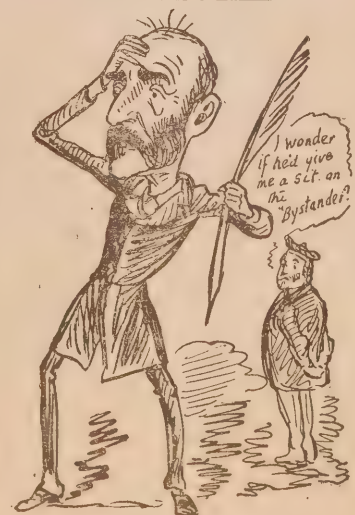 I wonder
if he'd give
me a sit. on
the
"Bystander?